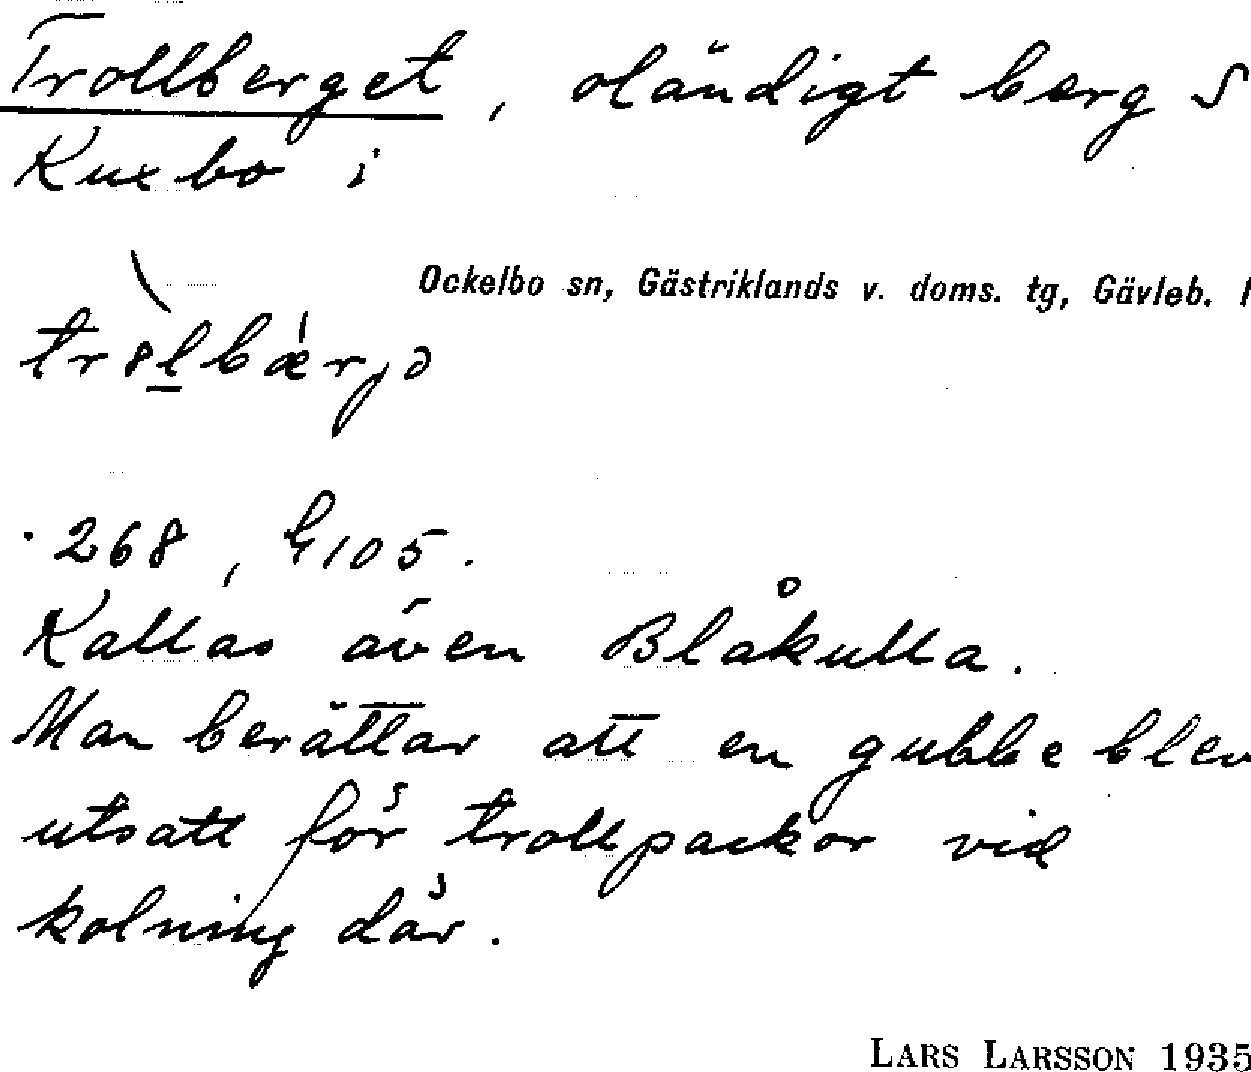 Trollberget, oländigt berg S
Kuxbo i
Ockelbo sn, Gästriklands v. doms. tg, Gävleb. l
268, G105.
Kallas även Blåkulla.
Man berättar att en gubbe blev
utsatt för trollpackor vid
kolning där.
LARS LARSSON 1935